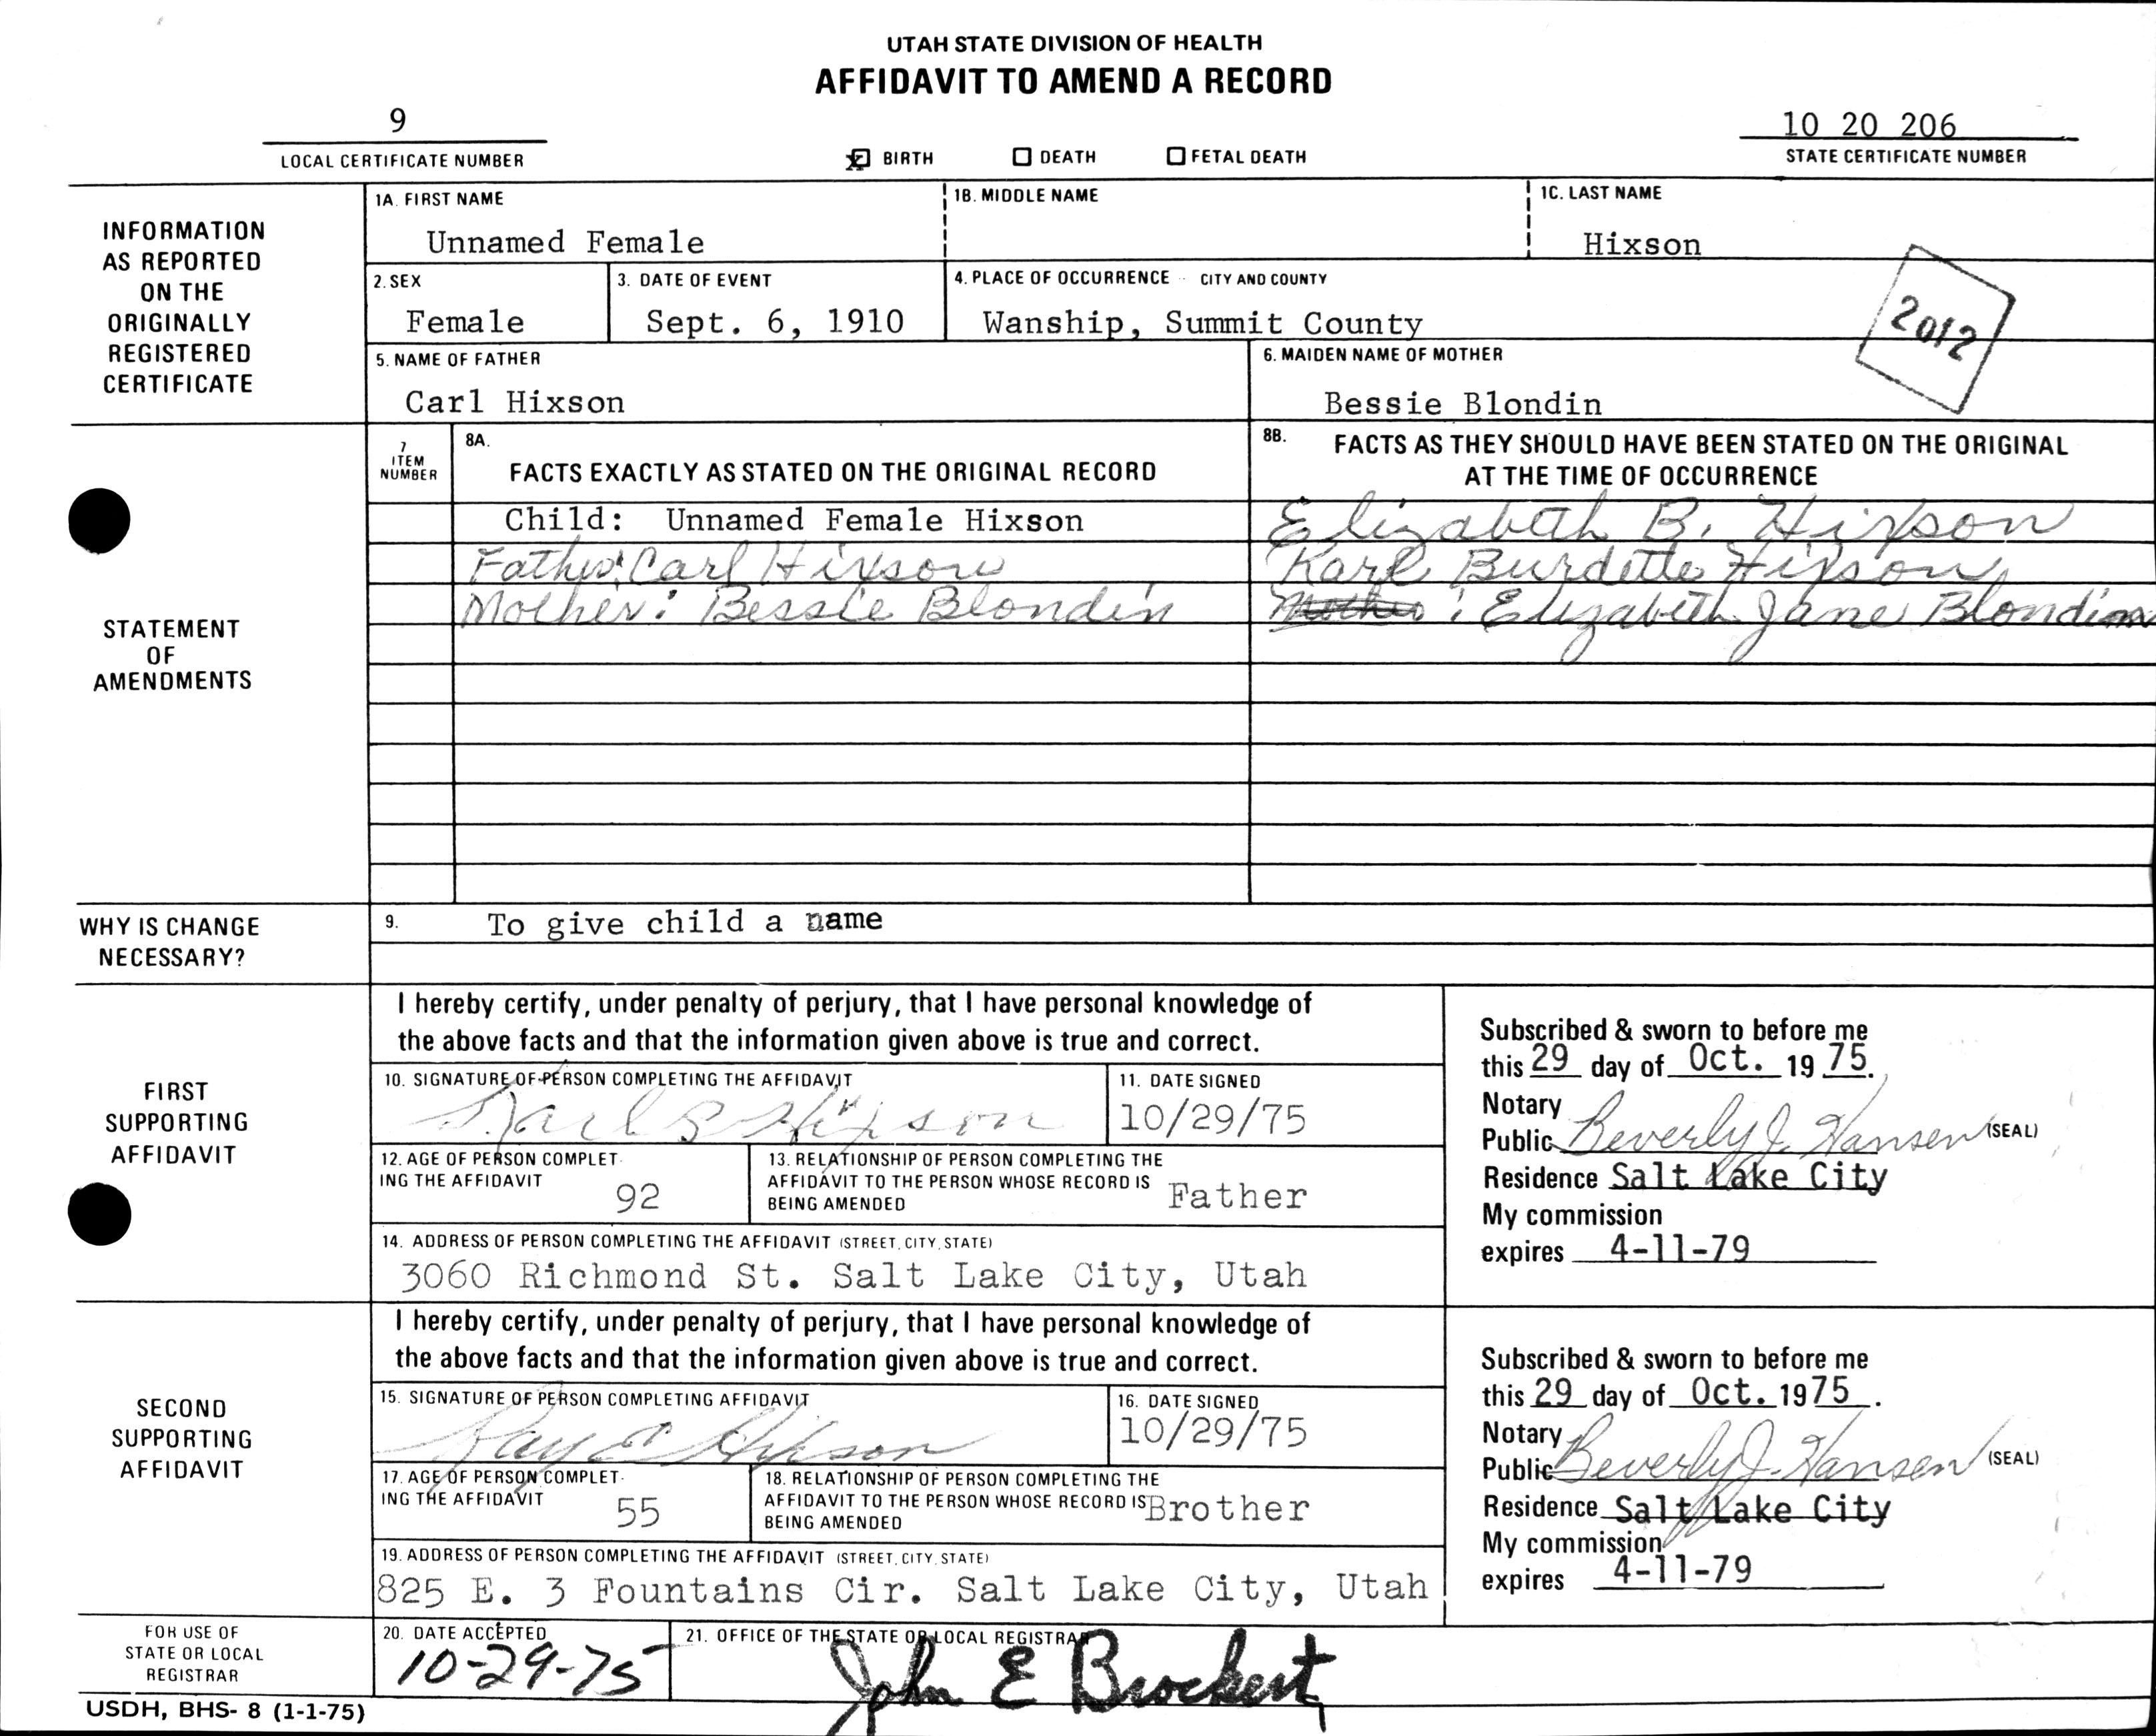 UTAH STATE DIVISION OF HEALTH
AFFIDAVIT TO AMEND A RECORD
9
LOCAL CERTIFICATE NUMBER
BIRTH DEATH FETAL DEATH
10 20 206
STATE CERTIFICATE NUMBER
INFORMATION
AS REPORTED
ON THE
ORIGINALLY
REGISTERED
CERTIFICATE
1A. FIRST NAME
Unnamed Female
1B. MIDDLE NAME
1C. LAST NAME
Hixson
2. SEX
Female
3. DATE OF EVENT
Sept. 6, 1910
4. PLACE OF OCCURRENCE CITY AND COUNTY
Wanship, Summit County
2012
5. NAME OF FATHER
Carl Hixson
6. MAIDEN NAME OF MOTHER
Bessie Blondin
STATEMENT
OF
AMENDMENTS
7
ITEM
NUMBER
8A.
FACTS EXACTLY AS STATED ON THE ORIGINAL RECORD
8B. FACTS AS THEY SHOULD HAVE BEEN STATED ON THE ORIGINAL
AT THE TIME OF OCCURRENCE
Child: Unnamed Female Hixson
Elizabeth B. Hixson
Father: Carl Hixson
Karl Burdette Hixson
Mother: Bessie Blondin
: Elizabeth Jane Blondin
WHY IS CHANGE
NECESSARY?
9. To give child a name
FIRST
SUPPORTING
AFFIDAVIT
I hereby certify, under penalty of perjury, that I have personal knowledge of
the above facts and that the information given above is true and correct.
10. SIGNATURE OF PERSON COMPLETING THE AFFIDAVIT
Karl B Hixson
11. DATE SIGNED
10/29/75
12. AGE OF PERSON COMPLET-
ING THE AFFIDAVIT
92
13. RELATIONSHIP OF PERSON COMPLETING THE
AFFIDAVIT TO THE PERSON WHOSE RECORD IS
BEING AMENDED
Father
14. ADDRESS OF PERSON COMPLETING THE AFFIDAVIT (STREET, CITY, STATE)
3060 Richmond St. Salt Lake City, Utah
Subscribed & sworn to before me
this 29 day of Oct. 19 75.
Notary
Public Beverly J. Hansen (SEAL)
Residence Salt Lake City
My commission
expires 4-11-79
SECOND
SUPPORTING
AFFIDAVIT
I hereby certify, under penalty of perjury, that I have personal knowledge of
the above facts and that the information given above is true and correct.
15. SIGNATURE OF PERSON COMPLETING AFFIDAVIT
Hixson
16. DATE SIGNED
10/29/75
17. AGE OF PERSON COMPLET-
ING THE AFFIDAVIT
55
18. RELATIONSHIP OF PERSON COMPLETING THE
AFFIDAVIT TO THE PERSON WHOSE RECORD IS
BEING AMENDED
Brother
19. ADDRESS OF PERSON COMPLETING THE AFFIDAVIT (STREET, CITY, STATE)
825 E. 3 Fountains Cir. Salt Lake City, Utah
Subscribed & sworn to before me
this 29 day of Oct. 1975.
Notary
Public Beverly J. Hansen (SEAL)
Residence Salt Lake City
My commission
expires 4-11-79
FOR USE OF
STATE OR LOCAL
REGISTRAR
20. DATE ACCEPTED
10-29-75
21. OFFICE OF THE STATE OR LOCAL REGISTRAR
John E Brockert
USDH, BHS- 8 (1-1-75)